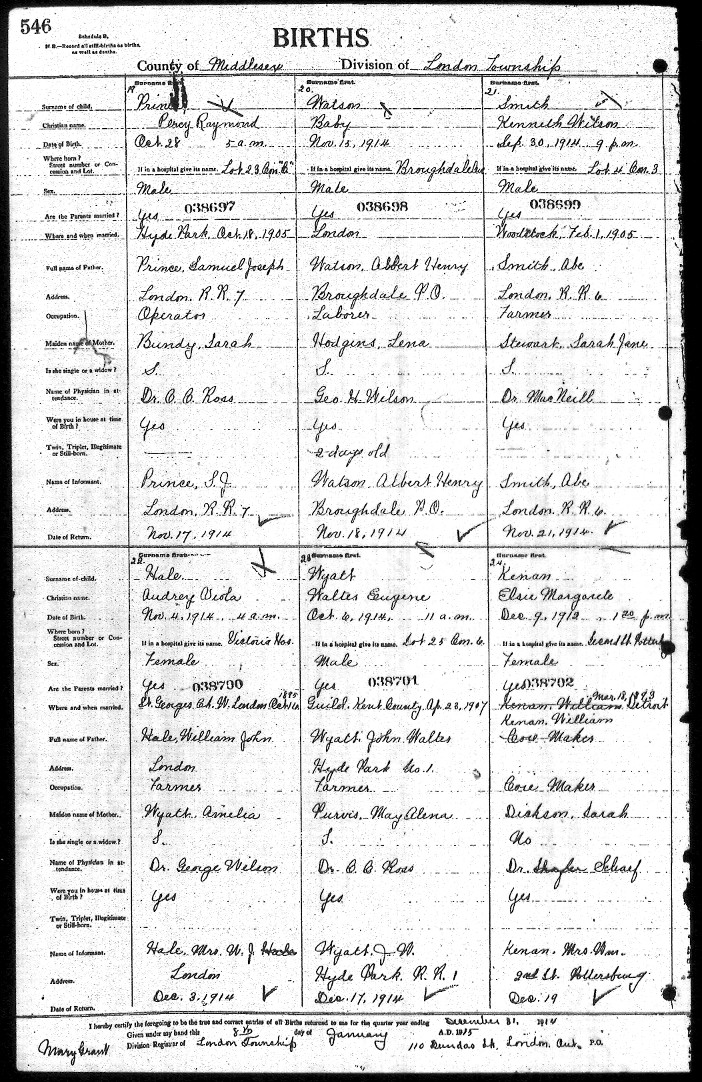 546
Schedule B.
N. B.—Record all still-births as births, as well as deaths.
BIRTHS
County of Middlesex Division of London Township
Surname first. Surname first. Surname first.
19. 20. 21.
Surname of child. Prince Watson Smith
Christian name. Percy Raymond Baby Kenneth Wilson
Date of Birth. Oct 28 5 a.m. Nov. 15, 1914 Sep. 30, 1914 9 p.m.
Where born? Street number or Concession and Lot. If in a hospital give its name. Lot 23 Con "C" If in a hospital give its name. Broughdale If in a hospital give its name. Lot 4 Con. 3
Sex. Male Male Male
038697 038698 038699
Are the Parents married? Yes Yes Yes
Where and when married. Hyde Park Oct. 18, 1905 London Woodstock Feb. 1, 1905
Full name of Father. Prince, Samuel Joseph Watson, Albert Henry Smith, Abe
Address. London, R.R. 7 Broughdale P.O. London, R.R. 6
Occupation. Operator Laborer Farmer
Maiden name of Mother. Bundy, Sarah Hodgins, Lena Stewart, Sarah Jane
Is she single or a widow? S. S. S.
Name of Physician in attendance. Dr. C. C. Ross Geo. H. Wilson Dr. MacNeill
Were you in house at time of Birth? Yes Yes Yes
Twin, Triplet, Illegitimate or Still-born. 2 days old
Name of Informant. Prince, S. J. Watson, Albert Henry Smith, Abe
Address. London, R.R. 7 Broughdale P.O. London, R.R. 6.
Date of Return. Nov. 17, 1914 Nov. 18, 1914 Nov. 21, 1914
Surname first. Surname first. Surname first.
22. 23 24.
Surname of child. Hale Wyatt Kenan
Christian name. Audrey Viola Walter Eugene Elsie Margarete
Date of Birth. Nov. 4, 1914 4 a.m. Oct 6, 1914, 11 a.m. Dec 9, 1913 1 20 p.m.
Where born? Street number or Concession and Lot. If in a hospital give its name. Victoria Hos. If in a hospital give its name. Lot 25 Con. 6. If in a hospital give its name. Second St.
Sex. Female Male Female
038700 038701 038702
Are the Parents married? Yes Yes Yes
Where and when married. St. Georges Ch. W. London Oct 1895 Guild, Kent County, Ap. 23, 1907 Kenan, William Mar. 18, Detroit
Kenan, William
Full name of Father. Hale, William John Wyatt, John Walter Core Maker
Address. London Hyde Park No. 1.
Occupation. Farmer Farmer Core Maker
Maiden name of Mother. Wyatt, Amelia Purvis, May Alena Dickson, Sarah
Is she single or a widow? S. S. No
Name of Physician in attendance. Dr. George Wilson Dr. C. C. Ross Dr. Scharf
Were you in house at time of Birth? Yes Yes Yes
Twin, Triplet, Illegitimate or Still-born.
Name of Informant. Hale, Mrs. W. J. Hale Wyatt, J. W. Kenan, Mrs. Wm.
Address London Hyde Park, R.R. 1 2nd St. Pottersburg
Date of Return. Dec. 3, 1914 Dec. 17, 1914 Dec. 19
I hereby certify the foregoing to be the true and correct entries of all Births returned to me for the quarter year ending December 31, 1914
Given under my hand this 8th day of January A.D. 1915
Mary Grant Division Registrar of London Township 110 Dundas St., London, Ont. P.O.